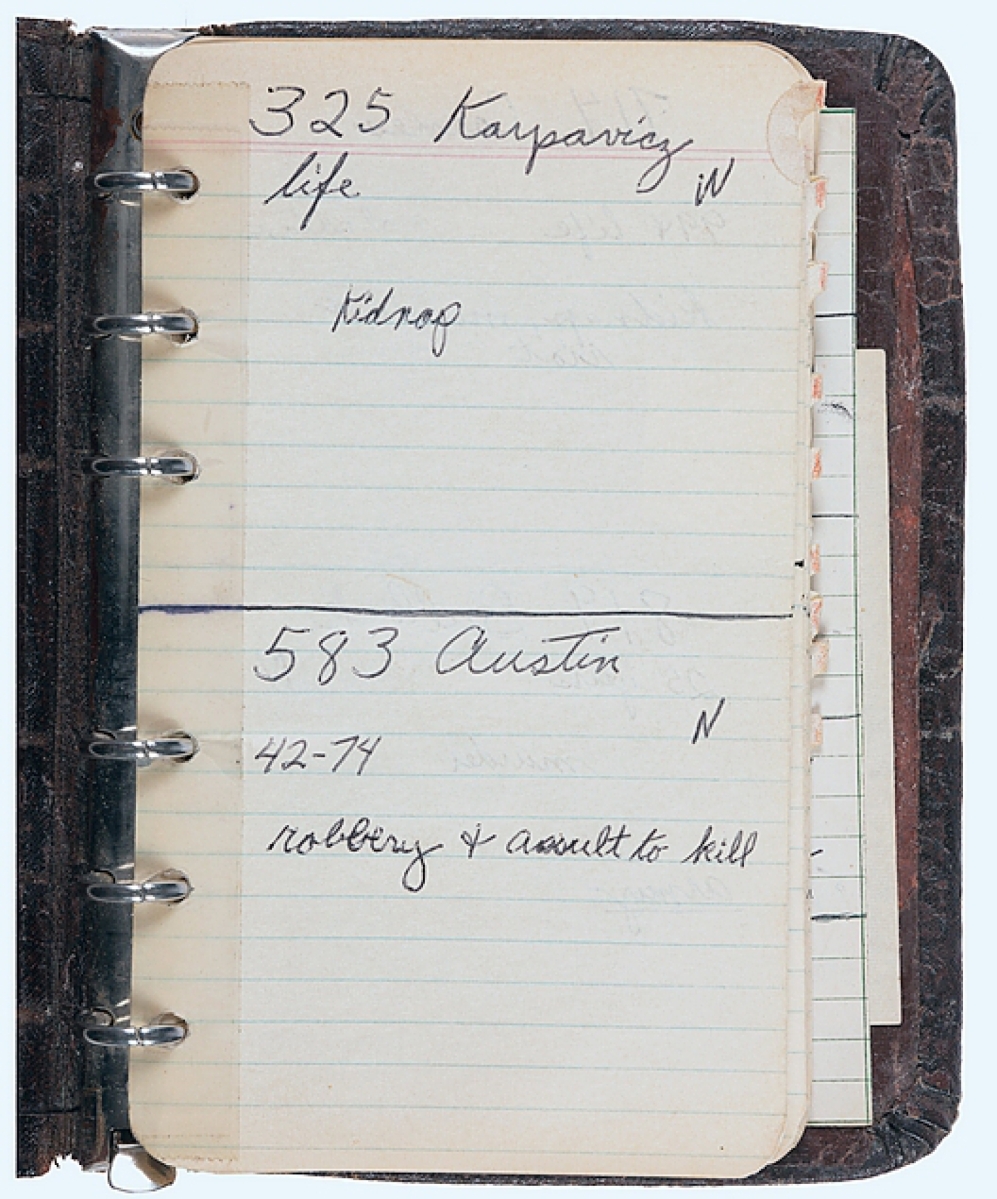 325 Karpavicz
life N
Kidnap
583 Austin
N
42-74
robbery & assult to kill